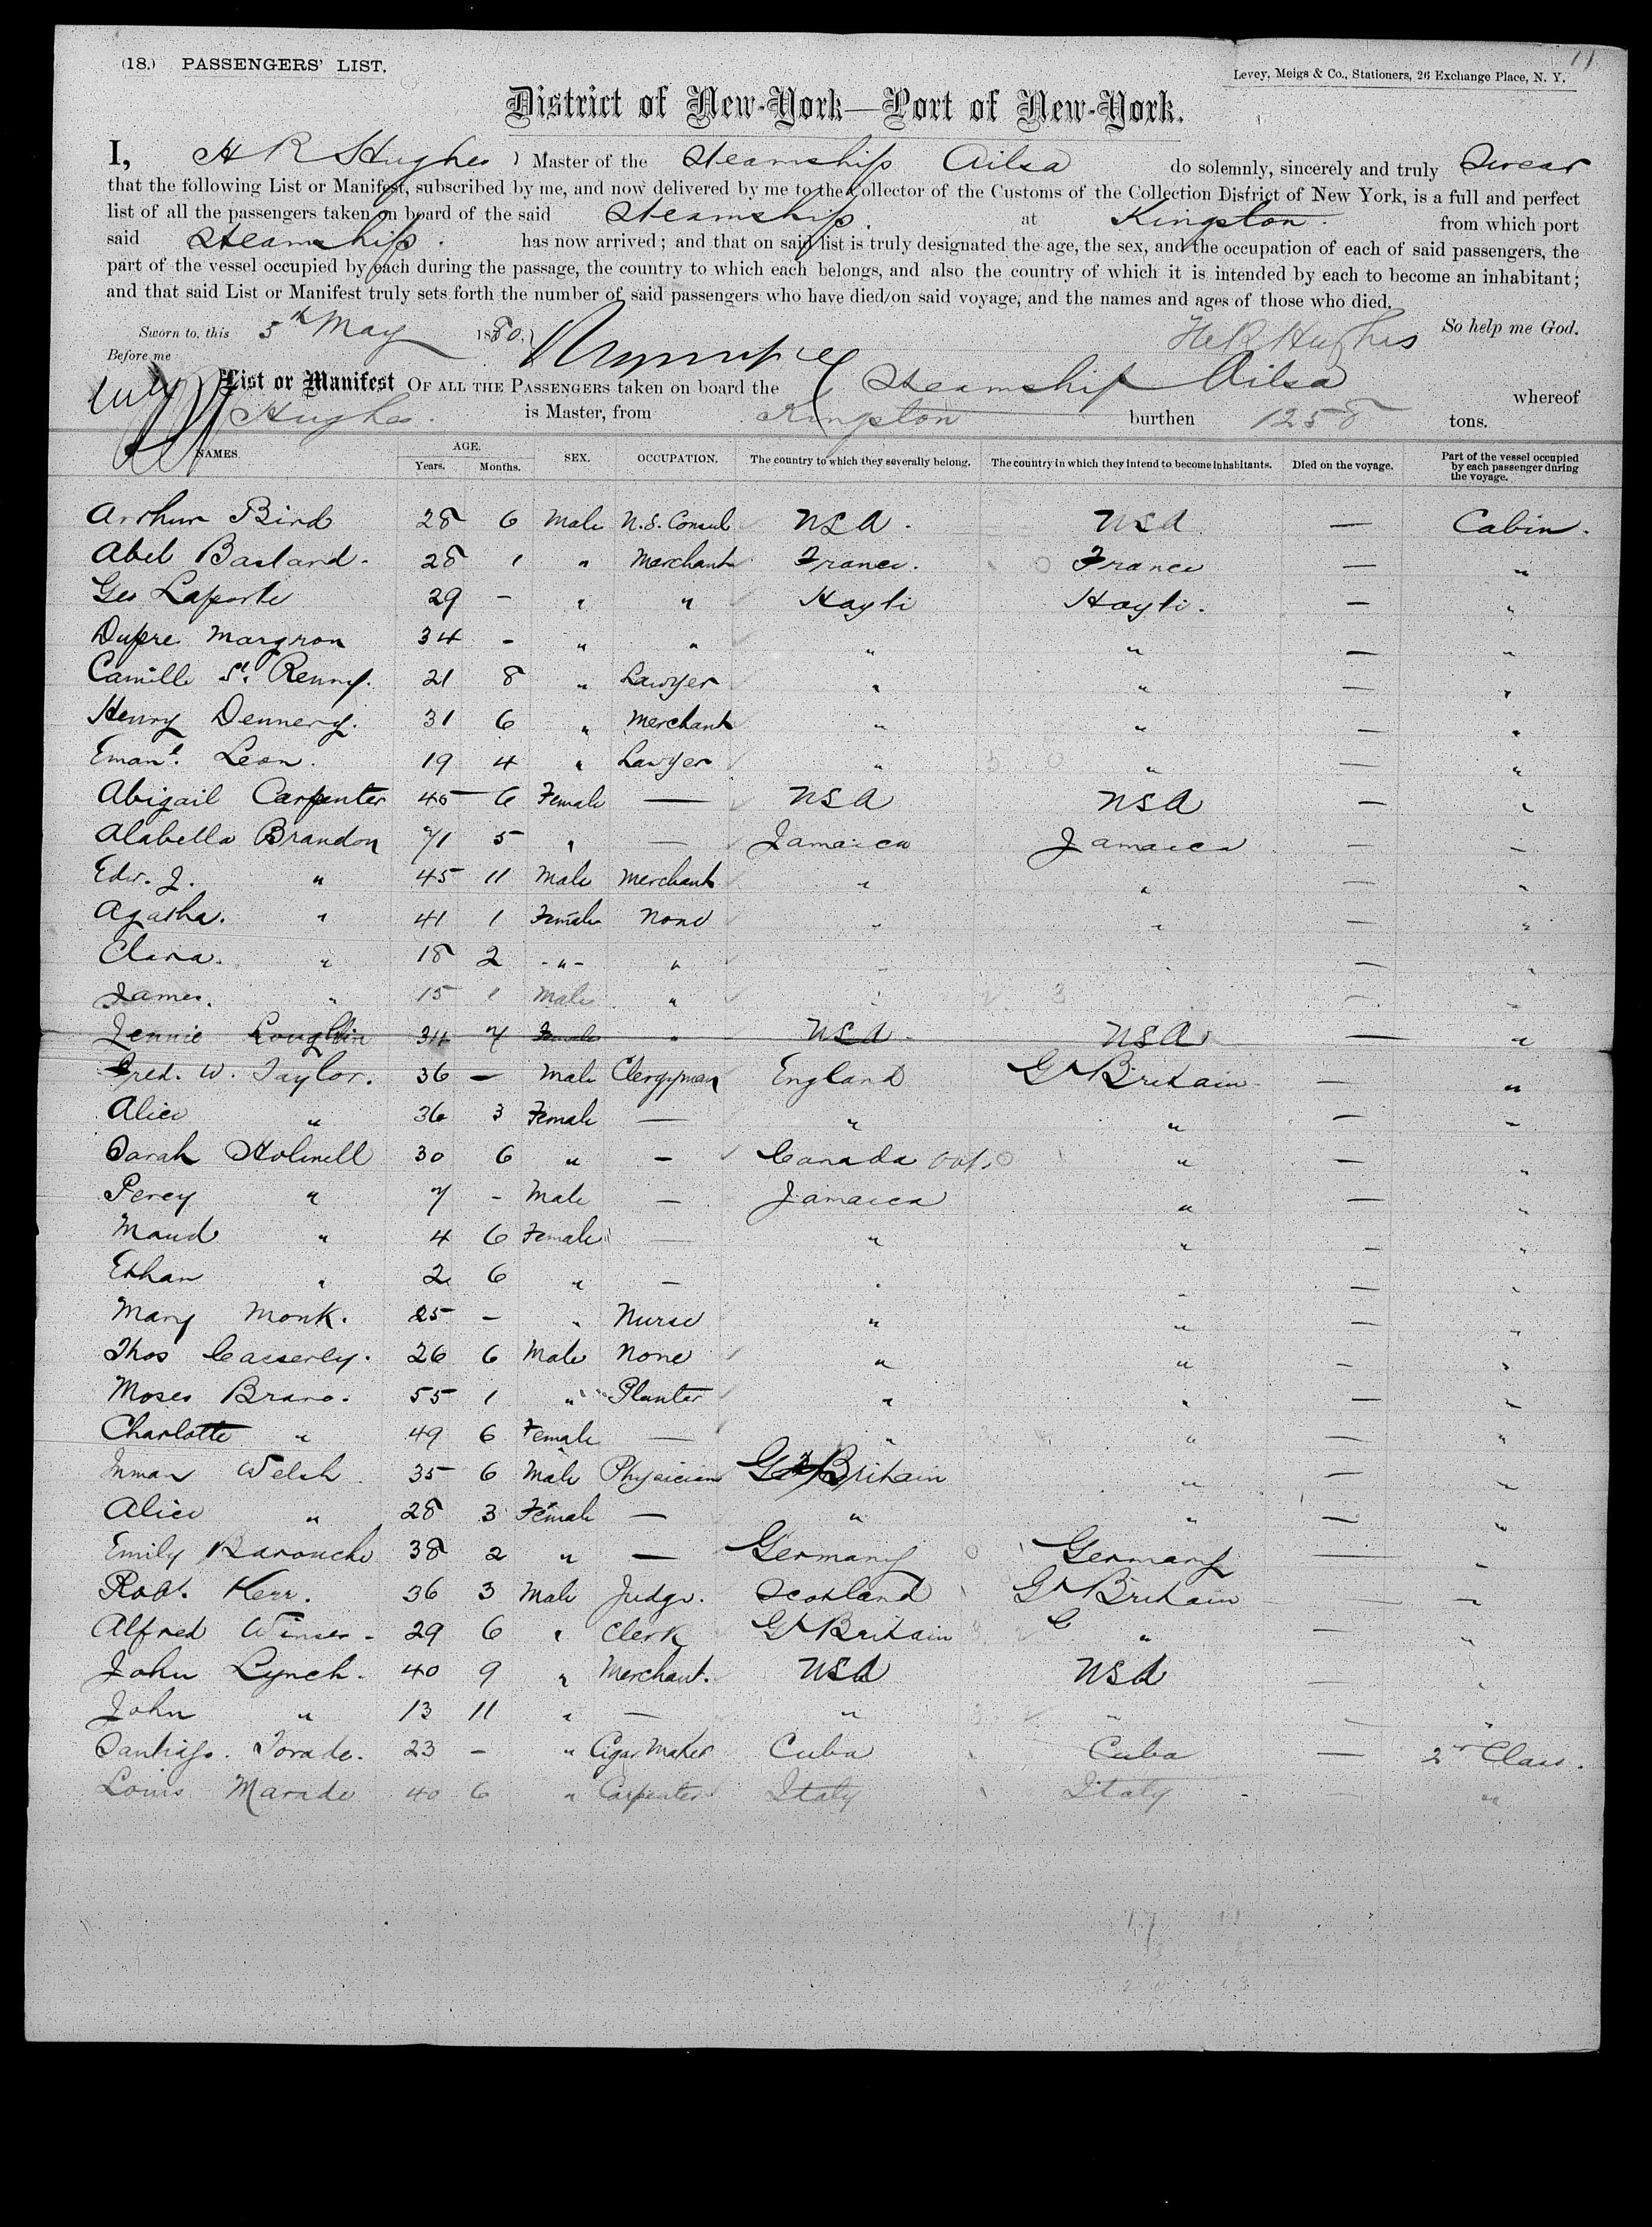 11
(18.) PASSENGERS' LIST.
Levey, Meigs & Co., Stationers, 26 Exchange Place, N. Y.
District of New-York—Port of New-York.
I, H R Hughes Master of the Steamship Ailsa do solemnly, sincerely and truly Swear
that the following List or Manifest, subscribed by me, and now delivered by me to the Collector of the Customs of the Collection District of New York, is a full and perfect
list of all the passengers taken on board of the said Steamship at Kingston. from which port
said Steamship. has now arrived; and that on said list is truly designated the age, the sex, and the occupation of each of said passengers, the
part of the vessel occupied by each during the passage, the country to which each belongs, and also the country of which it is intended by each to become an inhabitant;
and that said List or Manifest truly sets forth the number of said passengers who have died on said voyage, and the names and ages of those who died.
So help me God.
Sworn to, this 5th May 1880, H R Hughes
Before me
List or Manifest OF ALL THE PASSENGERS taken on board the Steamship Ailsa whereof
Hughes. is Master, from Kingston burthen 1258 tons.
NAMES. AGE. Years. Months. SEX. OCCUPATION. The country to which they severally belong. The country in which they intend to become inhabitants. Died on the voyage. Part of the vessel occupied by each passenger during the voyage.
Arthur Bird 28 6 Male U.S. Consul USA. USA — Cabin.
Abel Bastard. 28 1 " Merchant France. France — "
Geo Laporte 29 - " " Hayti Hayti. — "
Dupre Margron 34 - " " " " — "
Camille St. Remy. 21 8 " Lawyer " " — "
Henry Dennery. 31 6 " Merchant " " — "
Emanl. Leon. 19 4 " Lawyer " " — "
Abigail Carpenter 45 6 Female — USA USA — "
Alabella Brandon 71 5 " — Jamaica Jamaica — "
Edw. J. " 45 11 Male Merchant " " — "
Agatha. " 41 1 Female None " " — "
Clara. " 18 2 -"- " " " — "
James. " 15 1 Male " " " — "
Jennie Loughlin 34 7 Female " USA USA — "
Fred. W. Taylor. 36 — Male Clergyman England Gt Britain — "
Alice " 36 3 Female — " " — "
Sarah Holwell 30 6 " — Canada " — "
Percy " 7 - Male — Jamaica " — "
Maud " 4 6 Female — " " — "
Ethan " 2 6 " — " " — "
Mary Monk. 25 — " Nurse " " — "
Thos Casserley. 26 6 Male None " " — "
Moses Bravo. 55 1 " Planter " " — "
Charlotte " 49 6 Female — " " — "
Inman Welsh 35 6 Male Physician Gt Britain " — "
Alice " 28 3 Female — " " — "
Emily Barouche 38 2 " — Germany Germany — "
Robt. Kerr. 36 3 Male Judge. Scotland Gt Britain — "
Alfred 29 6 " Clerk Gt Britain G " — "
John Lynch. 40 9 " Merchant. USA USA — "
John " 13 11 " — " " — "
Santiago. Torado. 23 - " Cigar Maker Cuba Cuba — 2nd Class.
Louis Marade 40 6 " Carpenter Italy Italy — "
17 11